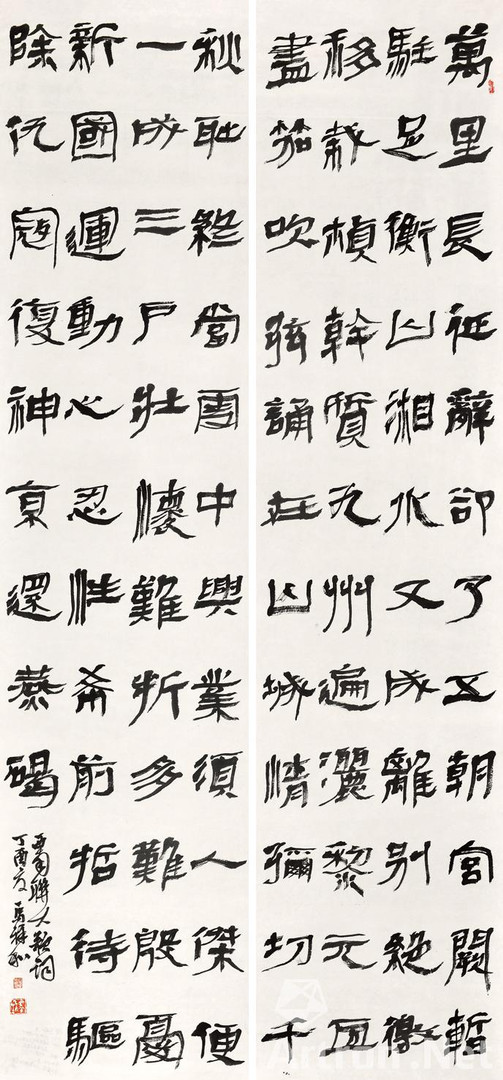 萬里長征辭卻了五朝宮闕暫
駐足衡山湘水又成離別絕徼
移栽楨幹質九州遍灑黎元血
盡笳吹弦誦在山城情彌切千
秋恥終當雪中興業須人傑便
一成三戶壯懷難折多難殷憂
新國運動心忍性希前哲待驅
除仇寇復神京還燕碣
西南聯大歌詞
丁酉夏
Artron.Net